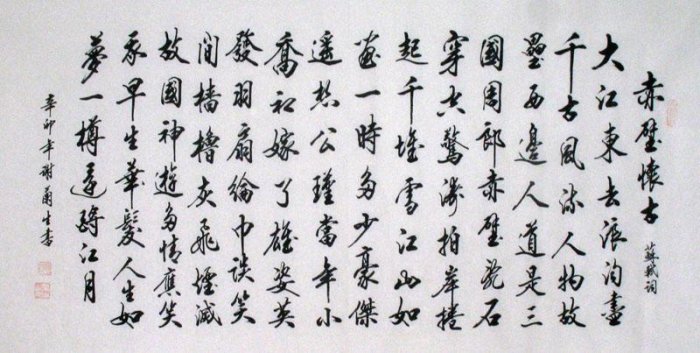 赤壁懷古 蘇軾詞
大江東去浪淘盡
千古風流人物故
壘西邊人道是三
國周郎赤壁亂石
穿空驚濤拍岸捲
起千堆雪江山如
畫一時多少豪傑
遙想公瑾當年小
喬初嫁了雄姿英
發羽扇綸巾談笑
間檣櫓灰飛煙滅
故國神遊多情應笑
我早生華髮人生如
夢一樽還酹江月
辛卯年謝生書